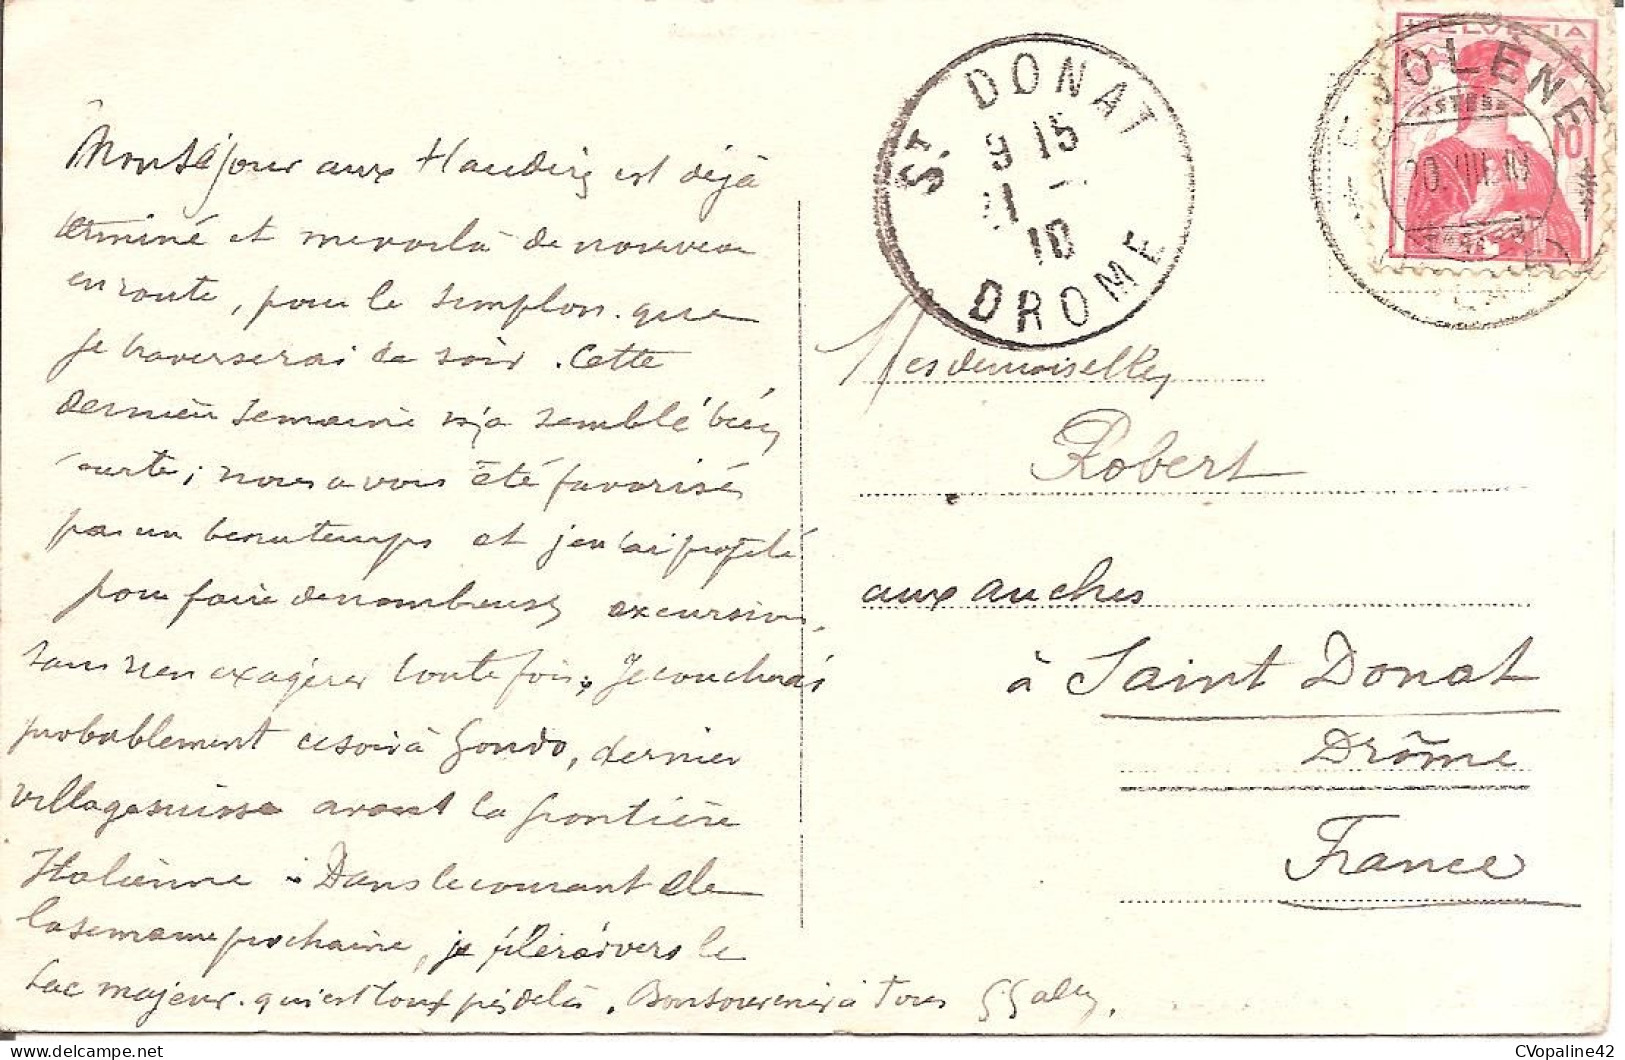 Mon séjour aux Haudères est déjà
terminé et me voilà de nouveau
en route, pour le Simplon que
je traverserai ce soir. Cette
dernière semaine m'a semblé bien
courte ; nous avons été favorisés
par un beau temps et j'en ai profité
pour faire de nombreuses excursions,
sans rien exagérer toutefois. Je coucherai
probablement ce soir à Gondo, dernier
village suisse avant la frontière
Italienne. Dans le courant de
la semaine prochaine, je filerai vers le
Lac majeur. qui est tout près de là. Bon souvenir à Tous
HELVETIA
10
EVOLÈNE
20.VIII.10
ST DONAT
9 15
21 - 
10
DROME
Mesdemoiselles
Robert
aux anches
à Saint Donat
Drôme
France
CVopaline42